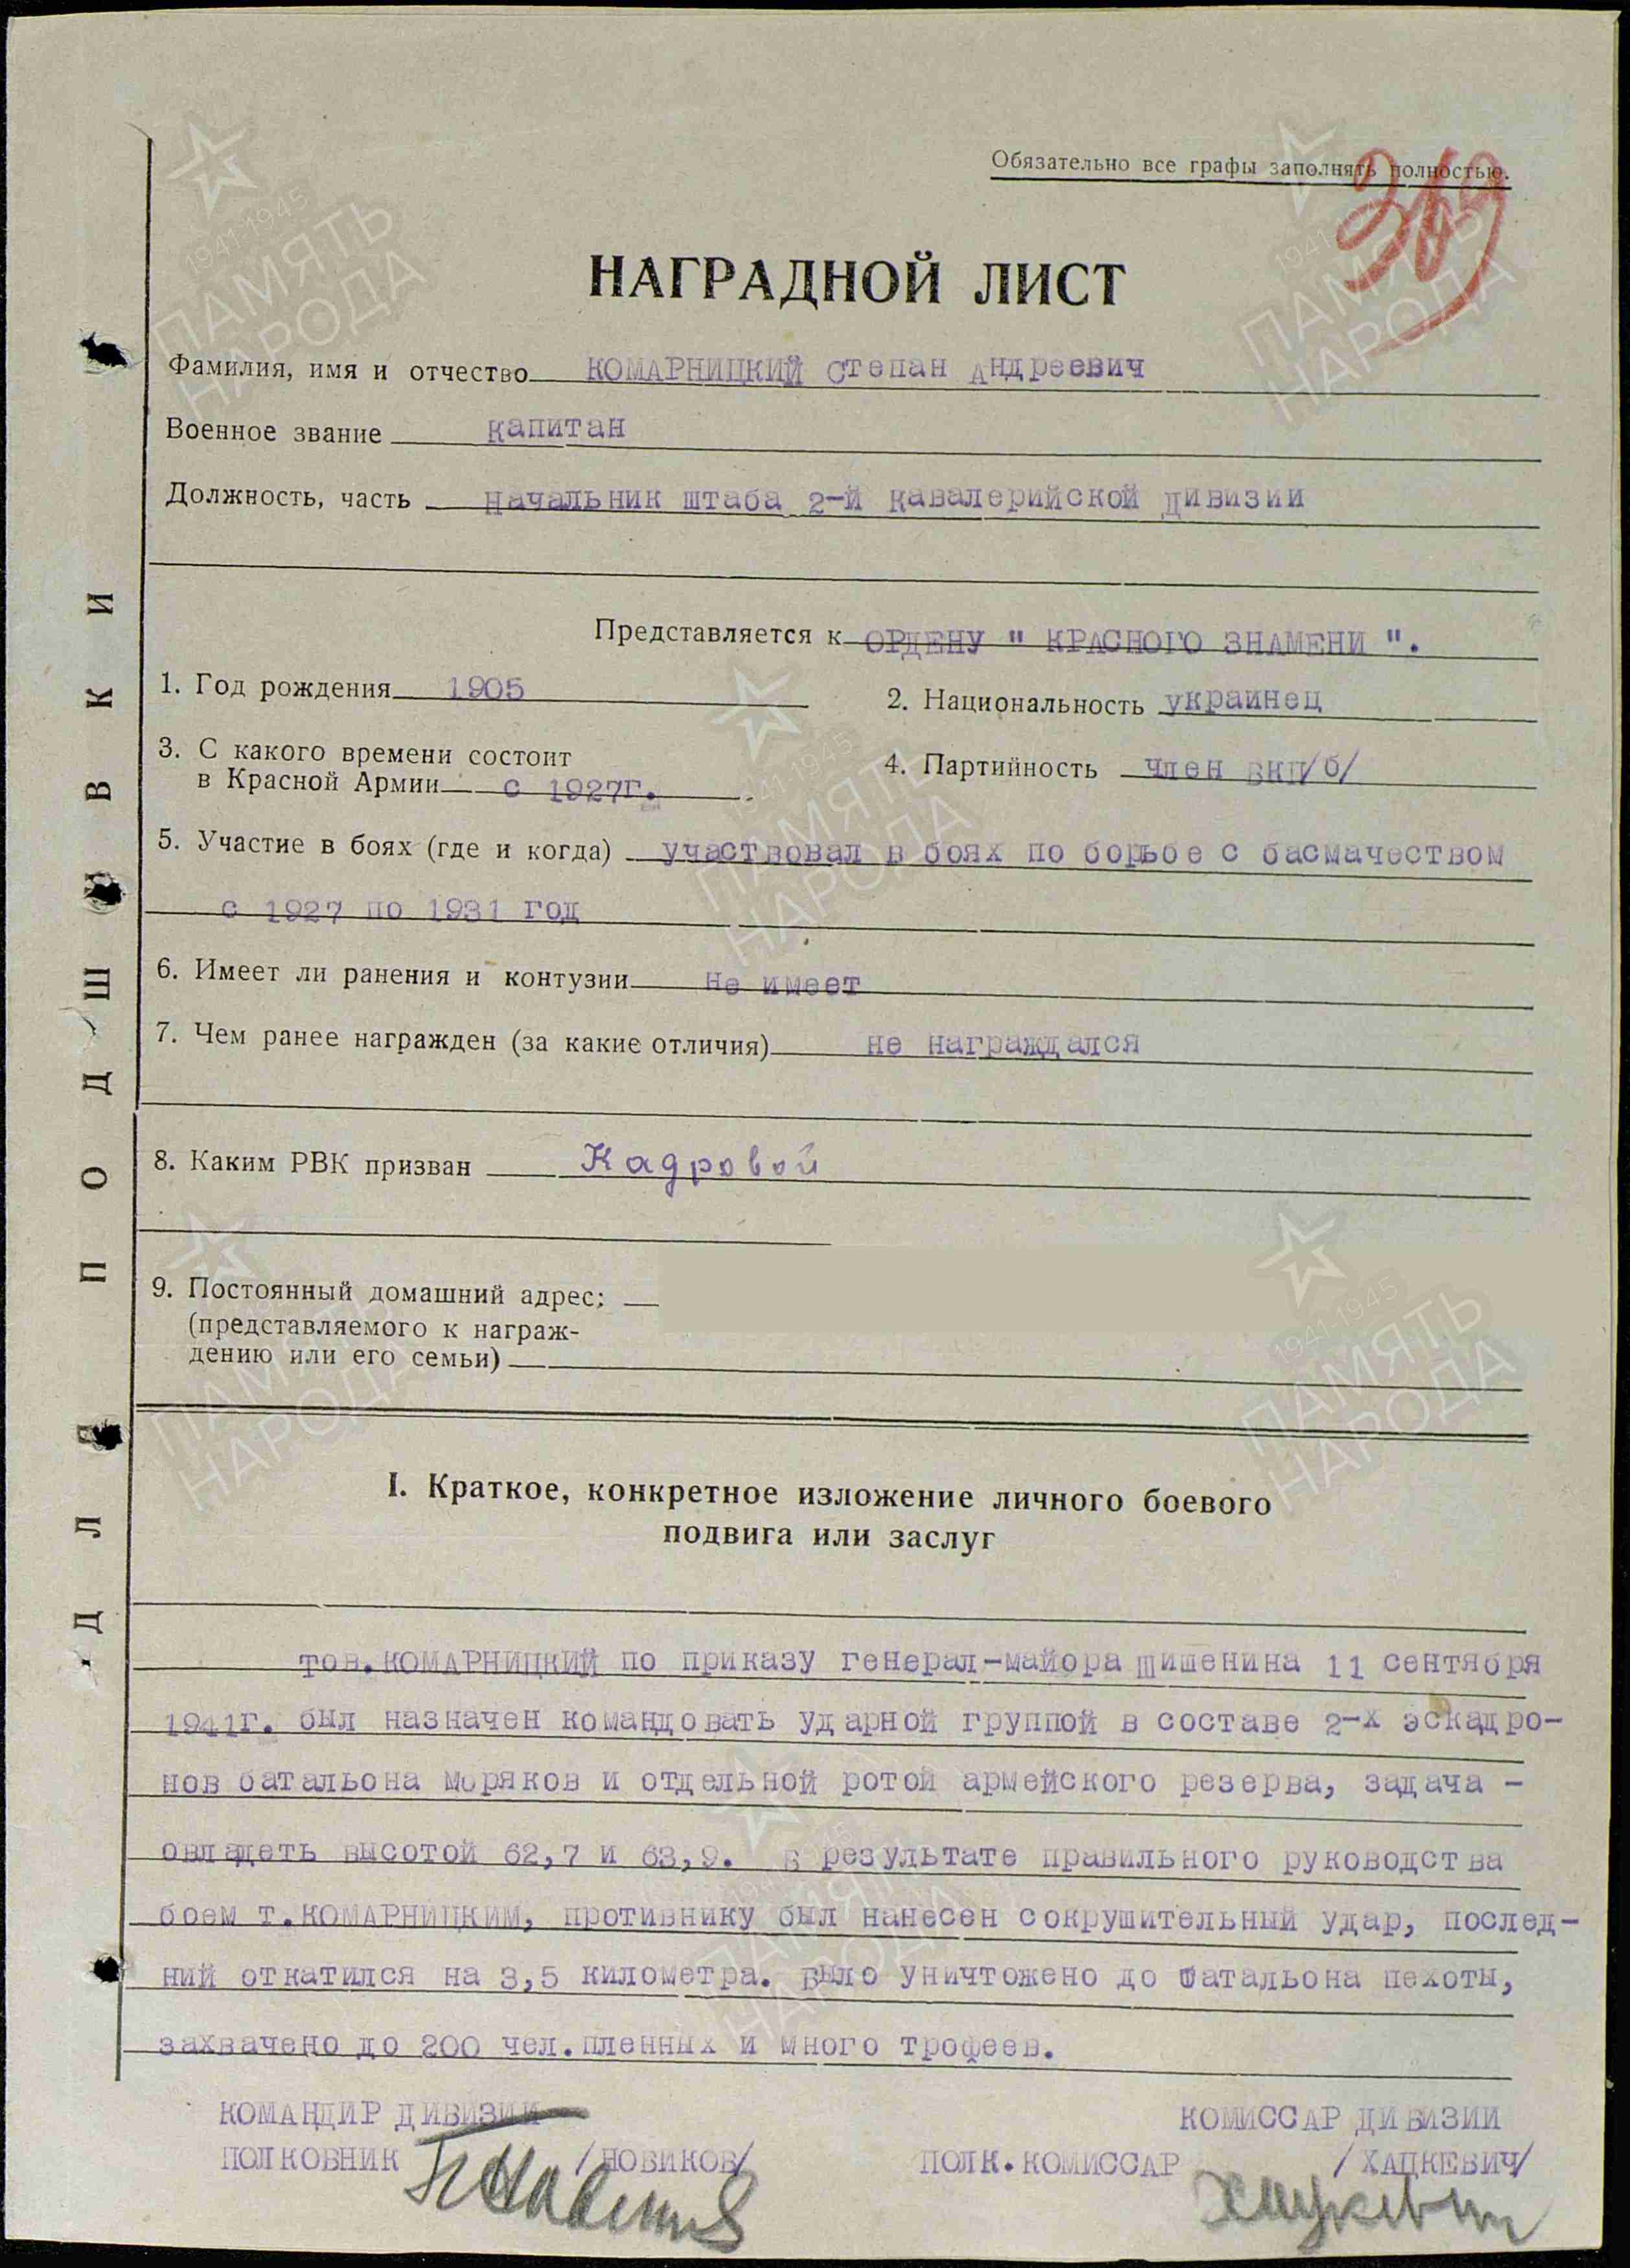 Обязательно все графы заполнять полностью.
369
НАГРАДНОЙ ЛИСТ
Фамилия, имя и отчество КОМАРНИЦКИЙ Степан Андреевич
Военное звание капитан
Должность, часть Начальник штаба 2-й кавалерийской дивизии
Представляется к ОРДЕНУ " КРАСНОГО ЗНАМЕНИ ".
1. Год рождения 1905
2. Национальность украинец
3. С какого времени состоит
в Красной Армии с 1927г.
4. Партийность член ВКП/б/
5. Участие в боях (где и когда) участвовал в боях по борьбе с басмачеством
с 1927 по 1931 год
6. Имеет ли ранения и контузии не имеет
7. Чем ранее награжден (за какие отличия) не награждался
8. Каким РВК призван Кадровой
9. Постоянный домашний адрес;
(представляемого к награж-
дению или его семьи)
I. Краткое, конкретное изложение личного боевого
подвига или заслуг
тов.КОМАРНИЦКИЙ по приказу генерал-майора Шишенина 11 сентября
1941г. был назначен командовать ударной группой в составе 2-х эскадро-
нов батальона моряков и отдельной ротой армейского резерва, задача -
овладеть высотой 62,7 и 63,9. В результате правильного руководства
боем т.КОМАРНИЦКИМ, противнику был нанесен сокрушительный удар, послед-
ний откатился на 3,5 километра. Было уничтожено до батальона пехоты,
захвачено до 200 чел.пленных и много трофеев.
КОМАНДИР ДИВИЗИИ
ПОЛКОВНИК /НОВИКОВ/
КОМИССАР ДИВИЗИИ
ПОЛК.КОМИССАР /ХАЦКЕВИЧ/
ДЛЯ ПОДШИВКИ
1941-1945
ПАМЯТЬ
НАРОДА